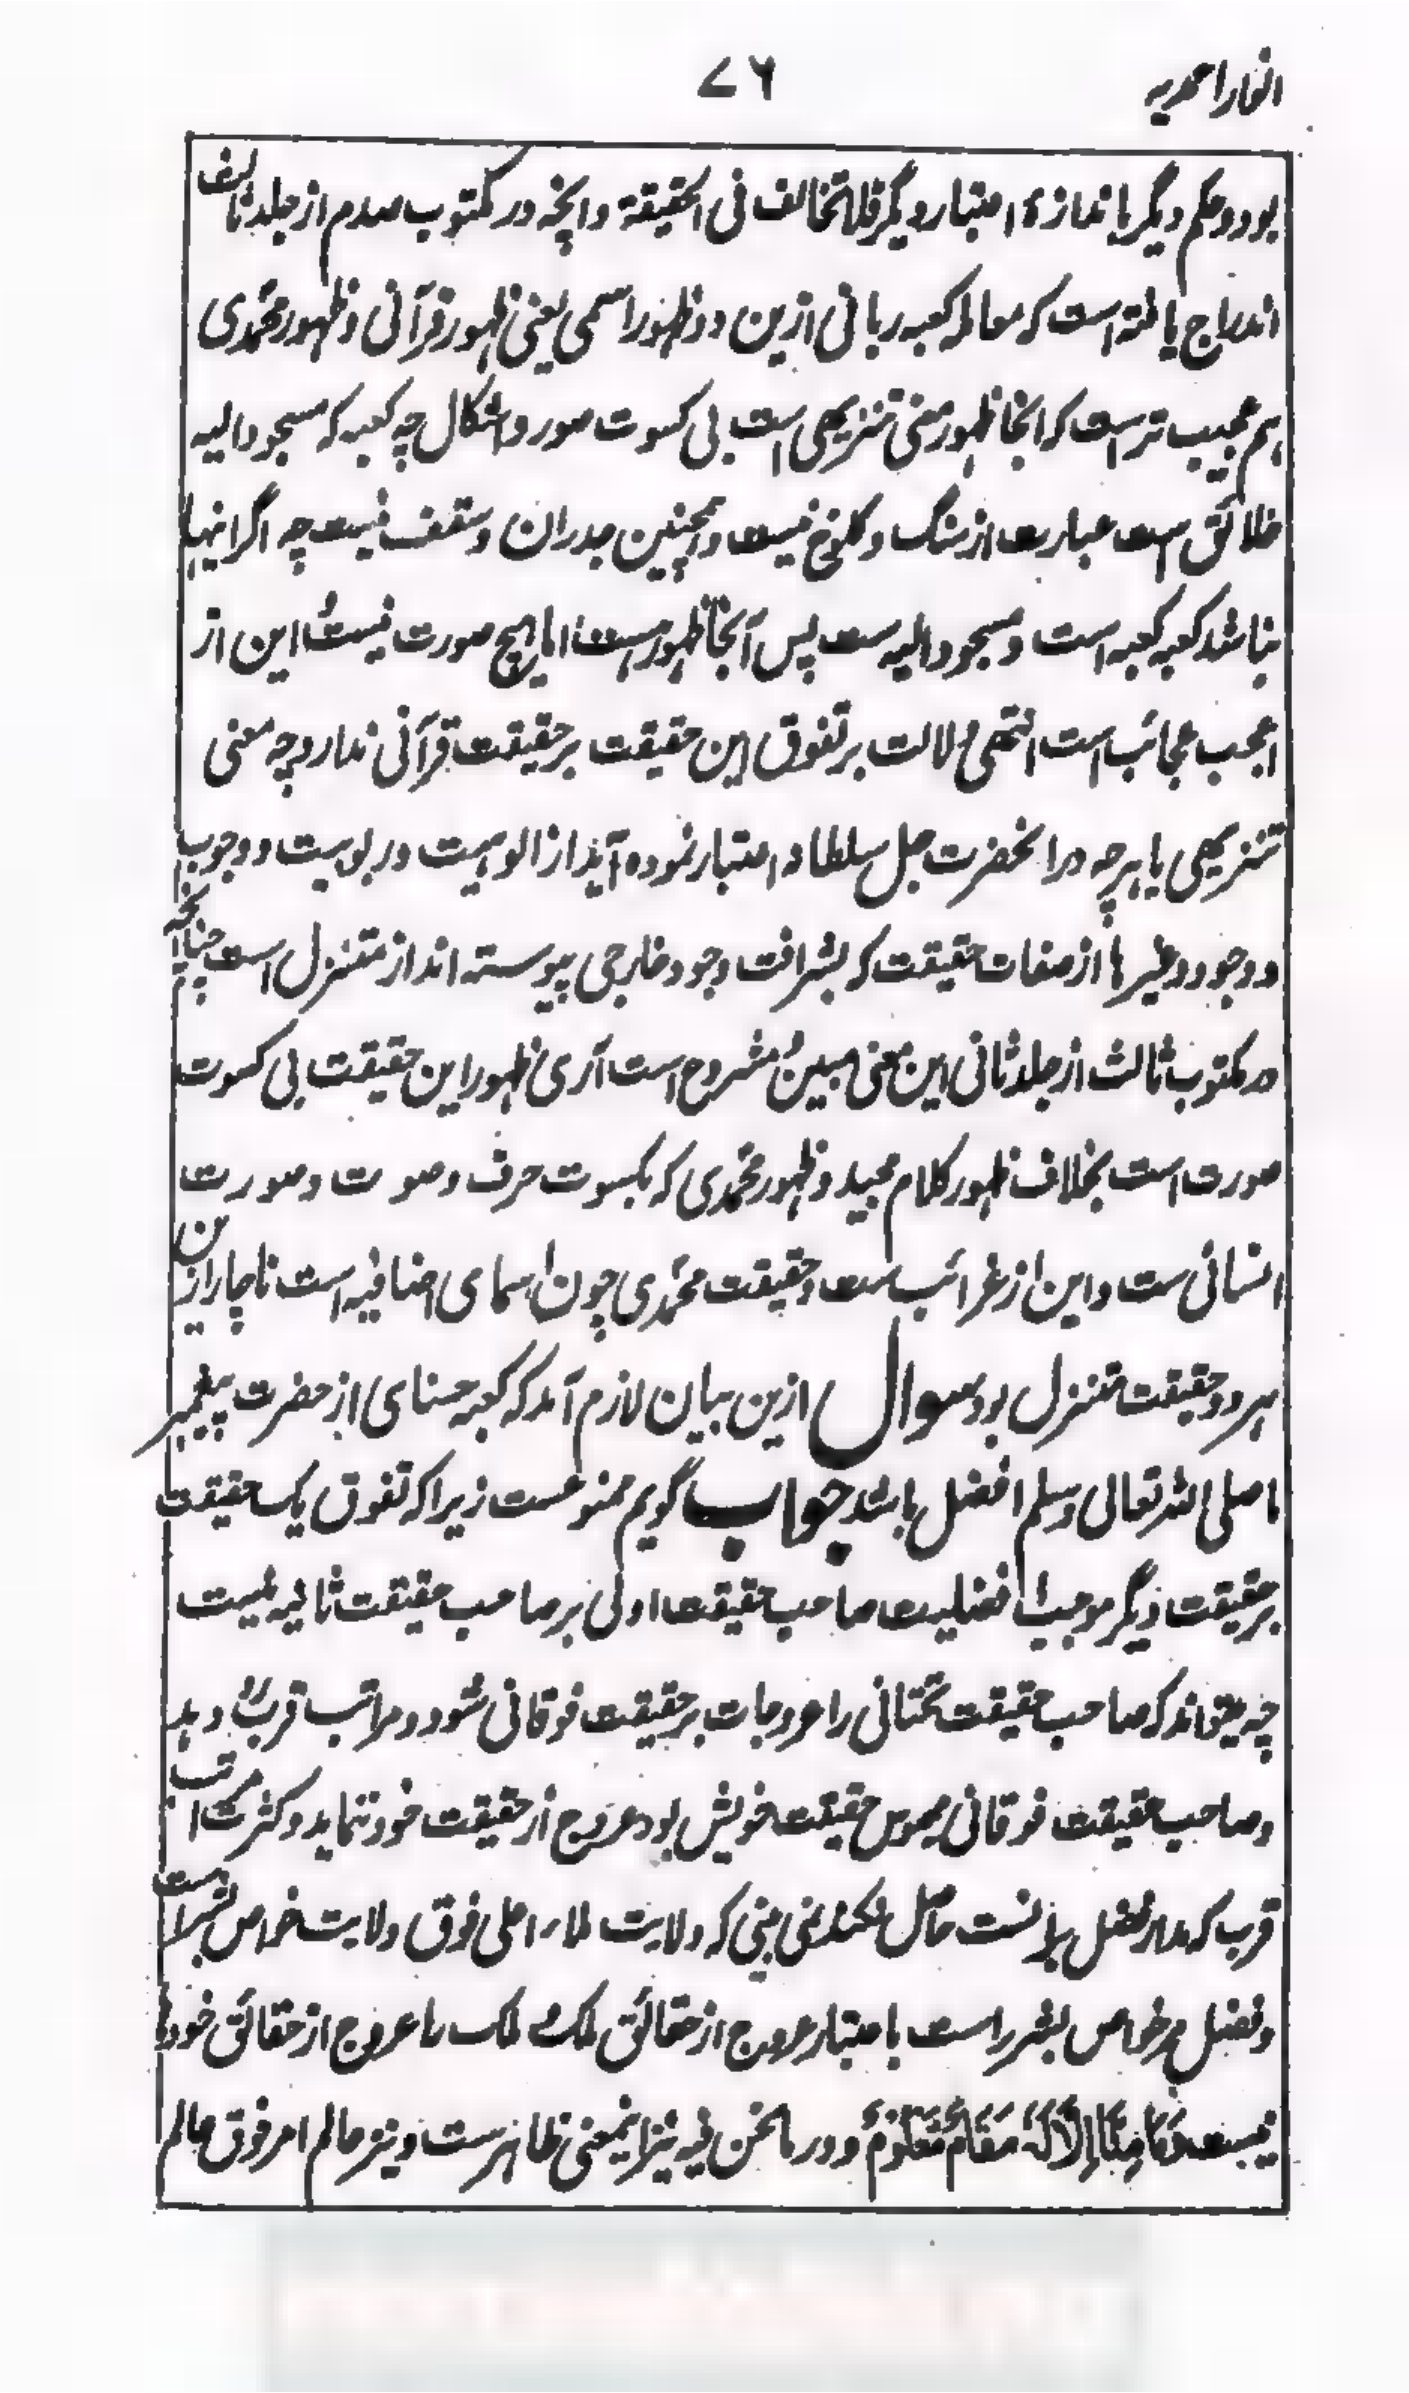 انوار احمدیہ
۷۶
بود و حکم دیگر باندازهٔ اعتبار دیگر فلا تخالف فی الحقیقة و آنچه در مکتوب صدم از جلد ثالث
اندراج یافته است که معامله کعبه ربانی ازین دو ظهور اسمی یعنی ظهور قرآنی و ظهور محمّدی
هم عجیب تر است که آنجا ظهور معنی تنزیهی است بی کسوت صور و اشکال چه کعبه که مسجود الیه
خلائق است عبارت از سنگ و کلوخ نیست و همچنین جدران و سقف نیست چه اگر اینها
نباشد کعبه کعبه است و مسجود الیه ست پس آنجا ظهور هست اما هیچ صورت نیست این از
اعجب عجائب است انتهی دلالت بر تفوق این حقیقت بر حقیقت قرآنی ندارد چه معنی
تنزیهی یا هرچه در آنحضرت جل سلطانه اعتبار نموده آید از الوهیت و ربوبیت و وجوب
و وجود و غیرها از صفات حقیقت که بشرافت وجود خارجی پیوسته اند از متنزل است چنانچه
در مکتوب ثالث از جلد ثانی این معنی مبین و مشروح است آری ظهور این حقیقت بی کسوت
صورت است بخلاف ظهور کلام مجید و ظهور محمّدی که بکسوت حرف و صوت و صورت
انسانی ست و این از غرائب ست و حقیقت محمّدی چون از اسمای اضافیه است ناچار ازین
هر دو حقیقت متنزل بود سوال ازین بیان لازم آمد که کعبه حسنای از حضرت پیغمبر
ما صلی الله تعالی وسلم افضل باشد جواب گویم ممنوعست زیرا که تفوق یک حقیقت
بر حقیقت دیگر موجب افضلیت صاحب حقیقت اولی بر صاحب حقیقت ثانیه نیست
چه میتواند که صاحب حقیقت تحتانی را عروجات بر حقیقت فوقانی شود و مراتب قرب رو دهد
و صاحب حقیقت فوقانی محبوس حقیقت خویش بود عروج از حقیقت خود ننماید و کثرت مراتب
قرب که مدار فضل بر انست حاصل نکند نمی بینی که ولایت ملاء اعلی فوق ولایت خواص بشر است
و فضل مر خواص بشر راست باعتبار عروج از حقائق ملک و ملک را عروج از حقائق خودها
نیست وَمَا مِنَّا إِلَّا لَهُ مَقَامٌ مَّعْلُومٌ و در ما نحن فیه نیز اینمعنی ظاهر ست و نیز عالم امر فوق عالم